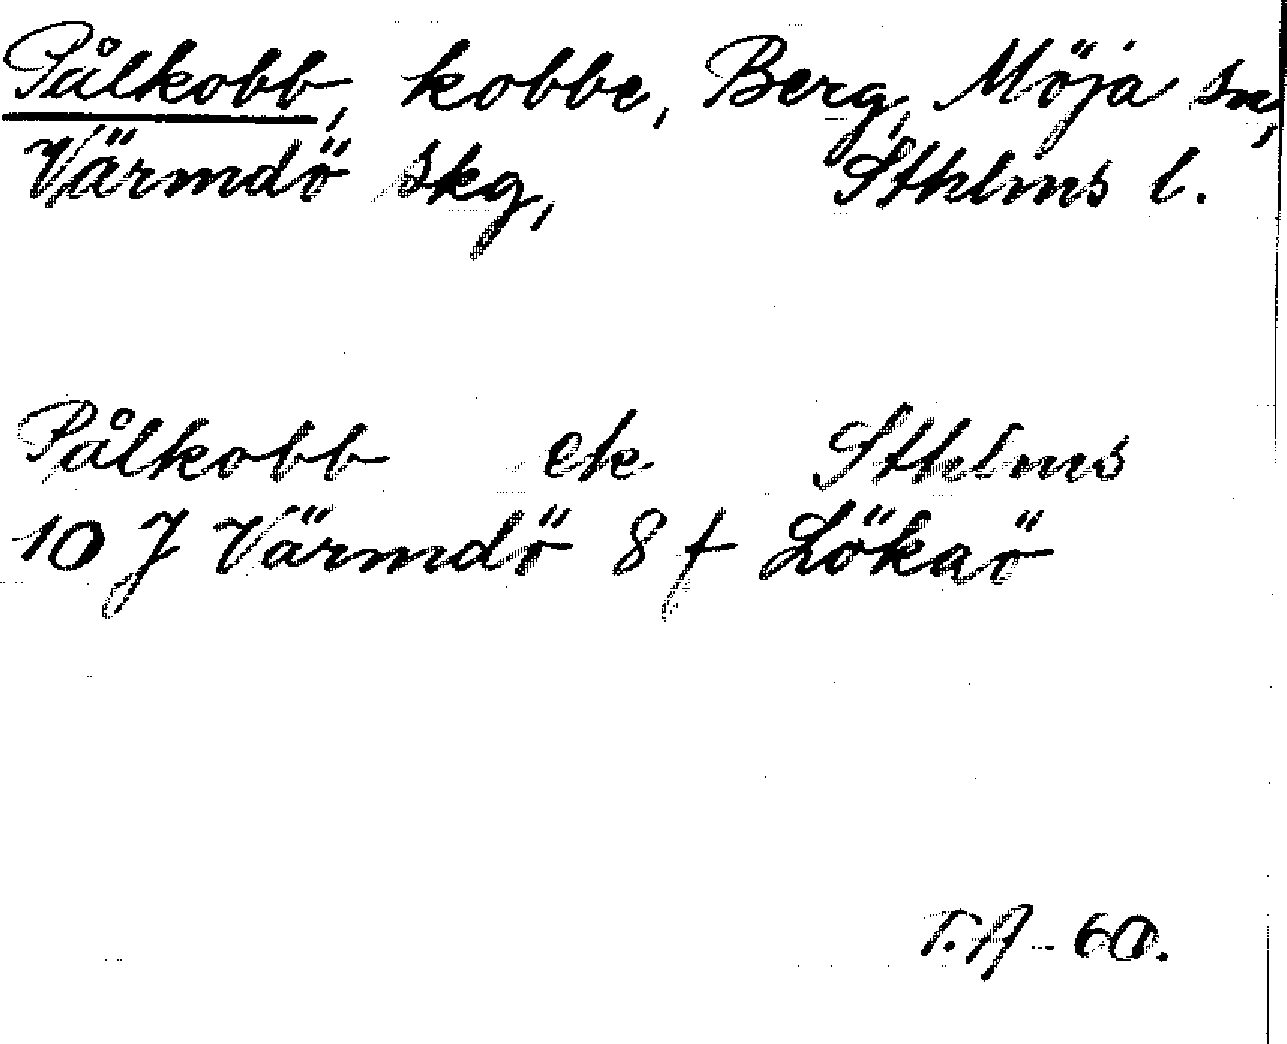 Pålkobb, kobbe, Berg, Möja sn,
Värmdö skg, Sthlms l.
Pålkobb ek Sthlms
10 J Värmdö 8 f Lökaö
T.A. 60.